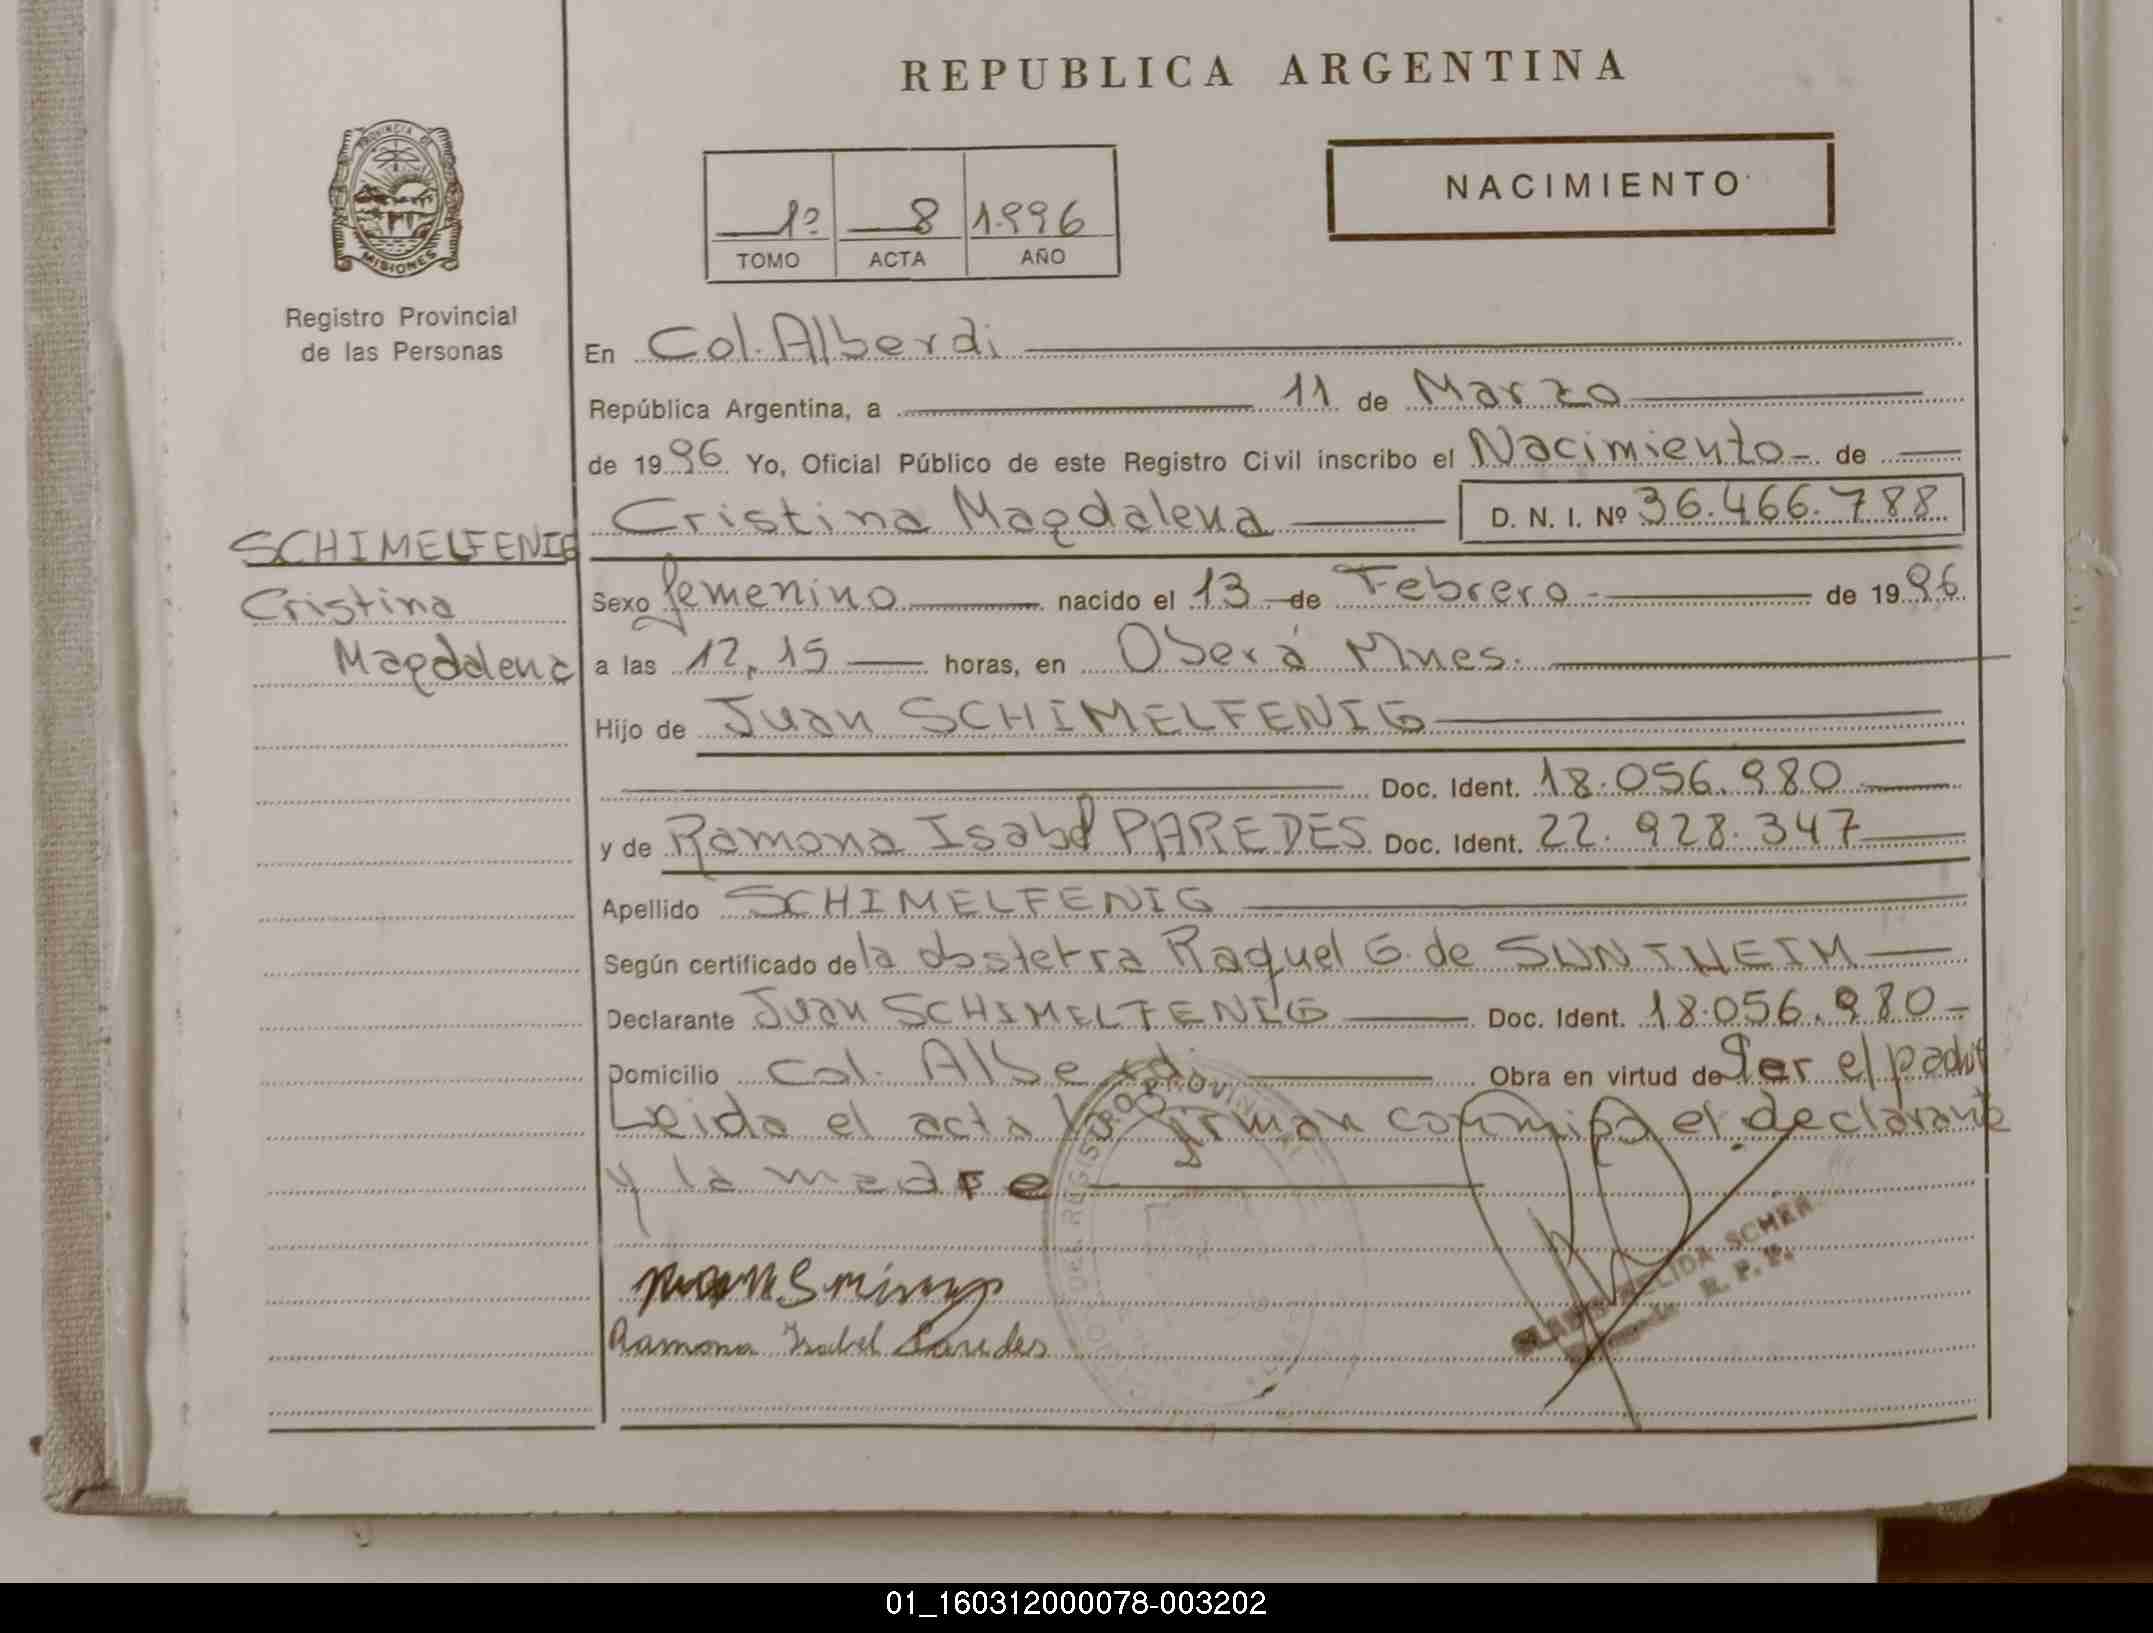 REPUBLICA ARGENTINA
PROVINCIA DE
MISIONES
NACIMIENTO
1º 8 1.996
TOMO ACTA AÑO
Registro Provincial
de las Personas
En Col. Alberdi
República Argentina, a 11 de Marzo
de 1996 Yo, Oficial Público de este Registro Civil inscribo el Nacimiento de
Cristina Magdalena D. N. I. Nº 36.466.788
SCHIMELFENIG
Cristina
Magdalena
Sexo femenino nacido el 13 de Febrero de 1996
a las 12,15 horas, en Oberá Mnes.
Hijo de Juan SCHIMELFENIG
Doc. Ident. 18.056.980
y de Ramona Isabel PAREDES Doc. Ident. 22.928.347
Apellido SCHIMELFENIG
Según certificado de la obstetra Raquel G. de
Declarante Juan SCHIMELFENIG Doc. Ident. 18.056.980
Domicilio Col. Alberdi Obra en virtud de Ser el padre
Leida el acta la firman conmigo el declarante
y la madre
Ramona Isabel Paredes
R. P. P.
01_160312000078-003202